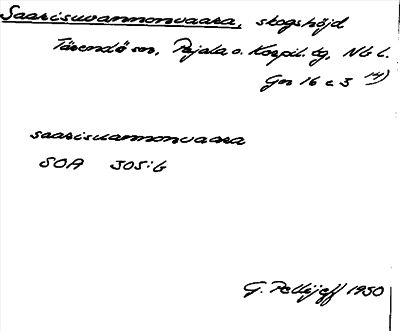 Saarisuvannonvaara, skogshöjd
Tärendö sn, Pajala o. Korpil. tg, Nb l.
Gr 16 c 3 14)
saarisuvannonvaara
SOA 305:6
G. Pellijeff 1950